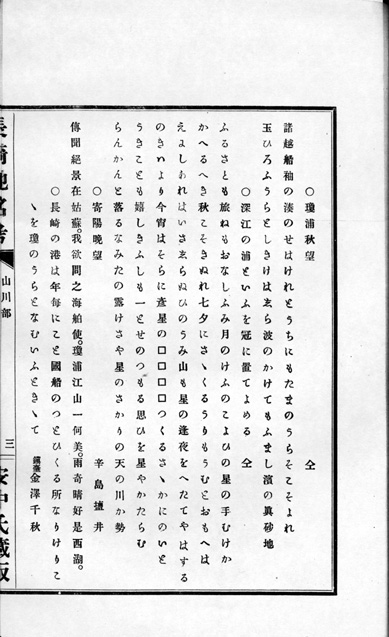 ○瓊浦秋望 仝
諸越船袖の湊のせはけれとうちにもたまのうらそこそよれ
玉ひろふうらとしきけはゑら波のかけてもふまし濱の眞砂地
○深江の浦といふを冠に置てよめる 仝
ふるさとも旅ねもおなしふみ月のけふのこよひの星の手むけか
かへるへき秋こそきぬれ七夕にさゝくるうりもうむとおもへは
えよしあれはいさゑらぬひのうみ山も星の逢夜をへたてやはする
のきはより今宵はそらに彦星の□□□□つくるさゝかにのいと
うきことも嬉しきふしも一とせのつもる思ひを星やかたらむ
らんかんと落るなみたの露けさや星のさかりの天の川か勢
○寄陽晩望 辛島鹽井
傳聞絕景在姑蘇。我欲問之海舶使。瓊浦江山一何美。雨奇晴好是西湖。
○長崎の港は年毎にこと國船のつとひくる所なりけりこ
ゝを瓊のうらとなむいふときゝて
金澤千秋
長崎地名考
山川部
三
安中氏藏版